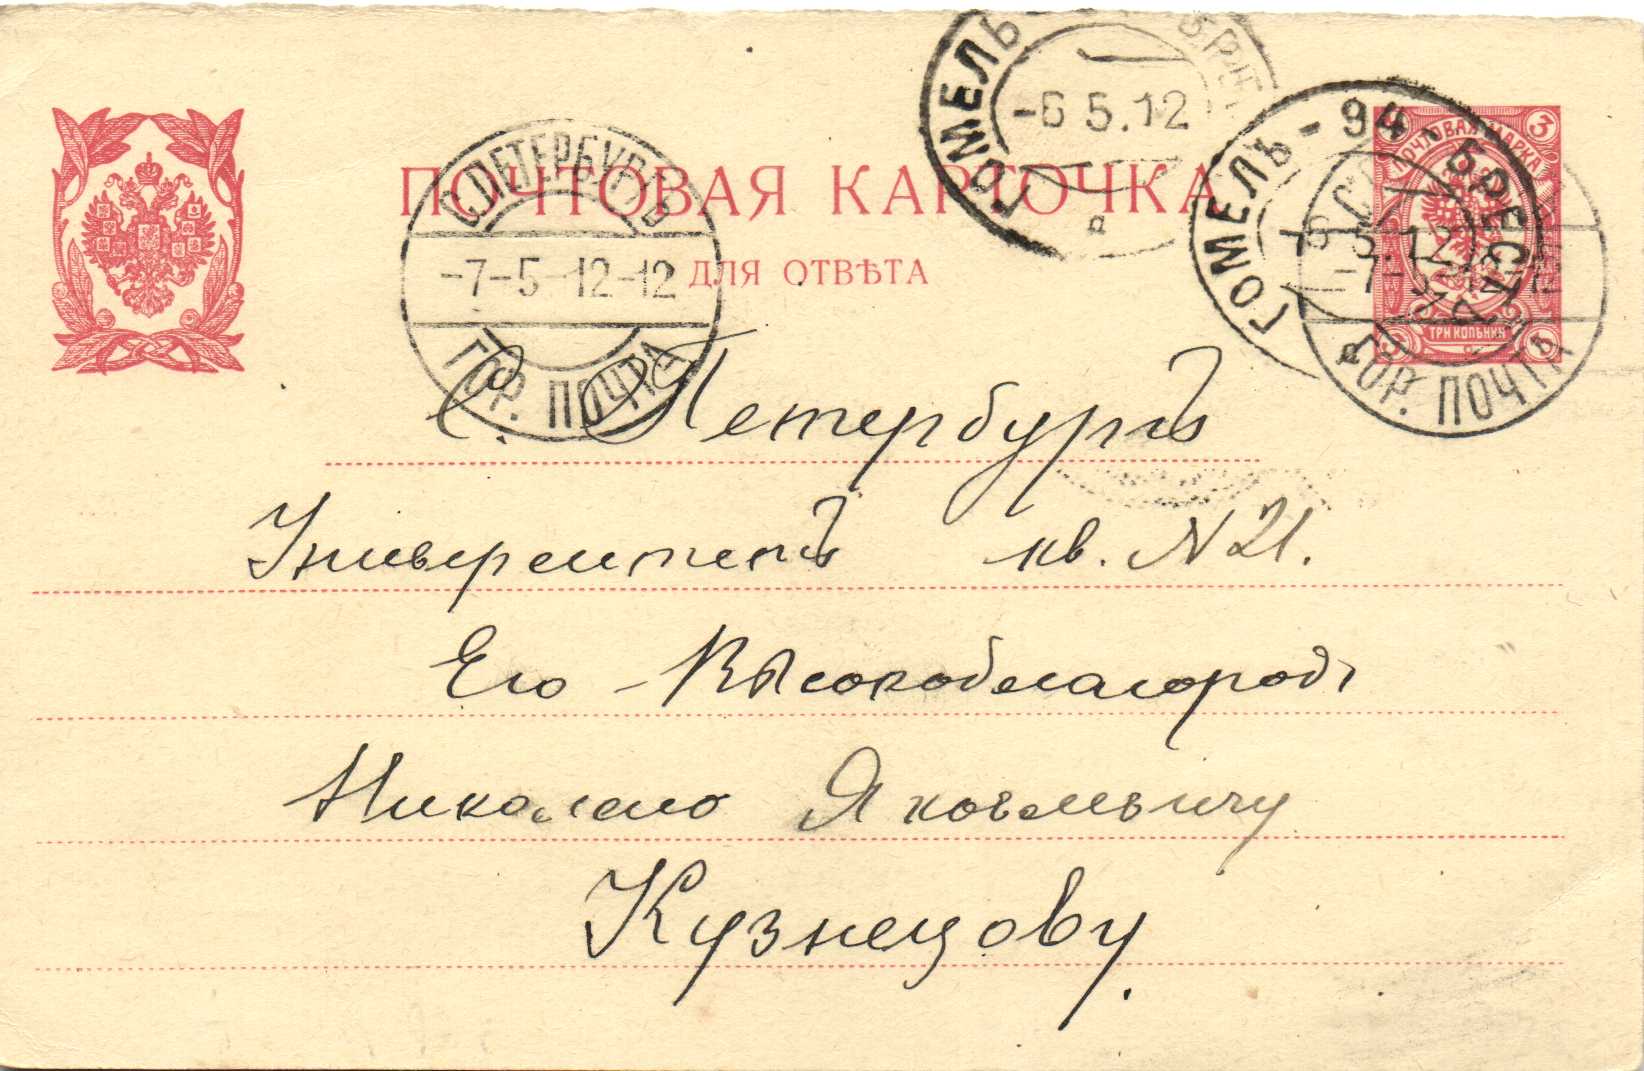 ГОМЕЛЬ БРЕ
-6 5.12
д
ГОМЕЛЬ - 94 - БРЕСТ
ПОЧТОВАЯ МАРКА
3
5.12
-7-5-12-12
ТРИ КОПѢЙКИ
д
ГОР. ПОЧТА
С.ПЕТЕРБУРГЪ
-7-5-12-12
ГОР. ПОЧТА
ПОЧТОВАЯ КАРТОЧКА
ДЛЯ ОТВѢТА
С. Петербургъ
Университетъ кв. N 21.
Его Высокоблагород.
Николаю Яковлевичу
Кузнецову.